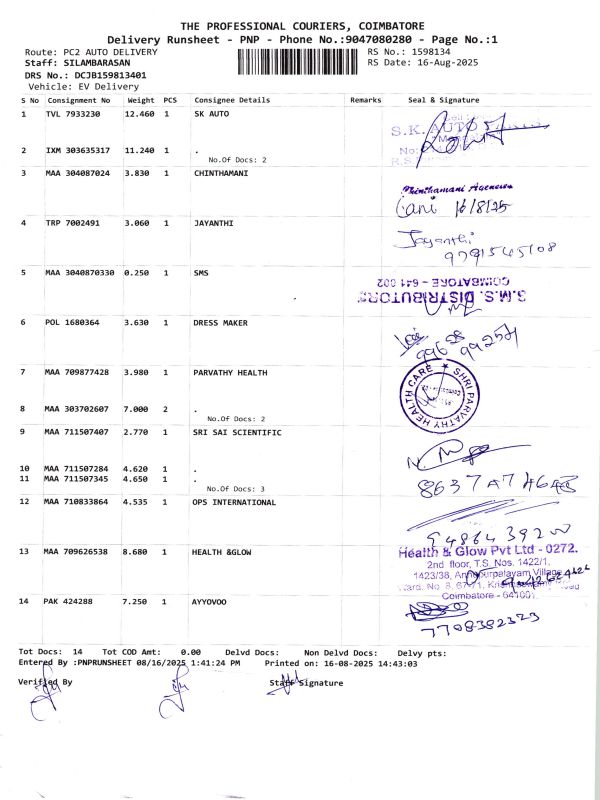 THE PROFESSIONAL COURIERS, COIMBATORE
Delivery Runsheet - PNP - Phone No.:9047080280 - Page No.:1
Route: PC2 AUTO DELIVERY RS No.: 1598134
Staff: SILAMBARASAN RS Date: 16-Aug-2025
DRS No.: DCJB159813401
Vehicle: EV Delivery
S No Consignment No Weight PCS Consignee Details Remarks Seal & Signature
1 TVL 7933230 12.460 1 SK AUTO
S.K. AUTO
2 IXM 303635317 11.240 1 .
No.Of Docs: 2
3 MAA 304087024 3.830 1 CHINTHAMANI
Chinthamani Agencies
16/8/25
4 TRP 7002491 3.060 1 JAYANTHI
Jayanthi
9791545108
5 MAA 3040870330 0.250 1 SMS
S.M.S. DISTRIBUTORS
COIMBATORE - 641 002
6 POL 1680364 3.630 1 DRESS MAKER
7 MAA 709877428 3.980 1 PARVATHY HEALTH
SHRI PARVATHY HEALTH CARE
8 MAA 303702607 7.000 2 .
No.Of Docs: 2
9 MAA 711507407 2.770 1 SRI SAI SCIENTIFIC
10 MAA 711507284 4.620 1 .
11 MAA 711507345 4.650 1 .
No.Of Docs: 3
12 MAA 710833864 4.535 1 OPS INTERNATIONAL
13 MAA 709626538 8.680 1 HEALTH &GLOW
Health & Glow Pvt Ltd - 0272.
2nd floor, T.S. Nos. 1422/1,
Coimbatore - 641001
14 PAK 424288 7.250 1 AYYOVOO
7708382323
Tot Docs: 14 Tot COD Amt: 0.00 Delvd Docs: Non Delvd Docs: Delvy pts:
Entered By :PNPRUNSHEET 08/16/2025 1:41:24 PM Printed on: 16-08-2025 14:43:03
Verified By Staff Signature